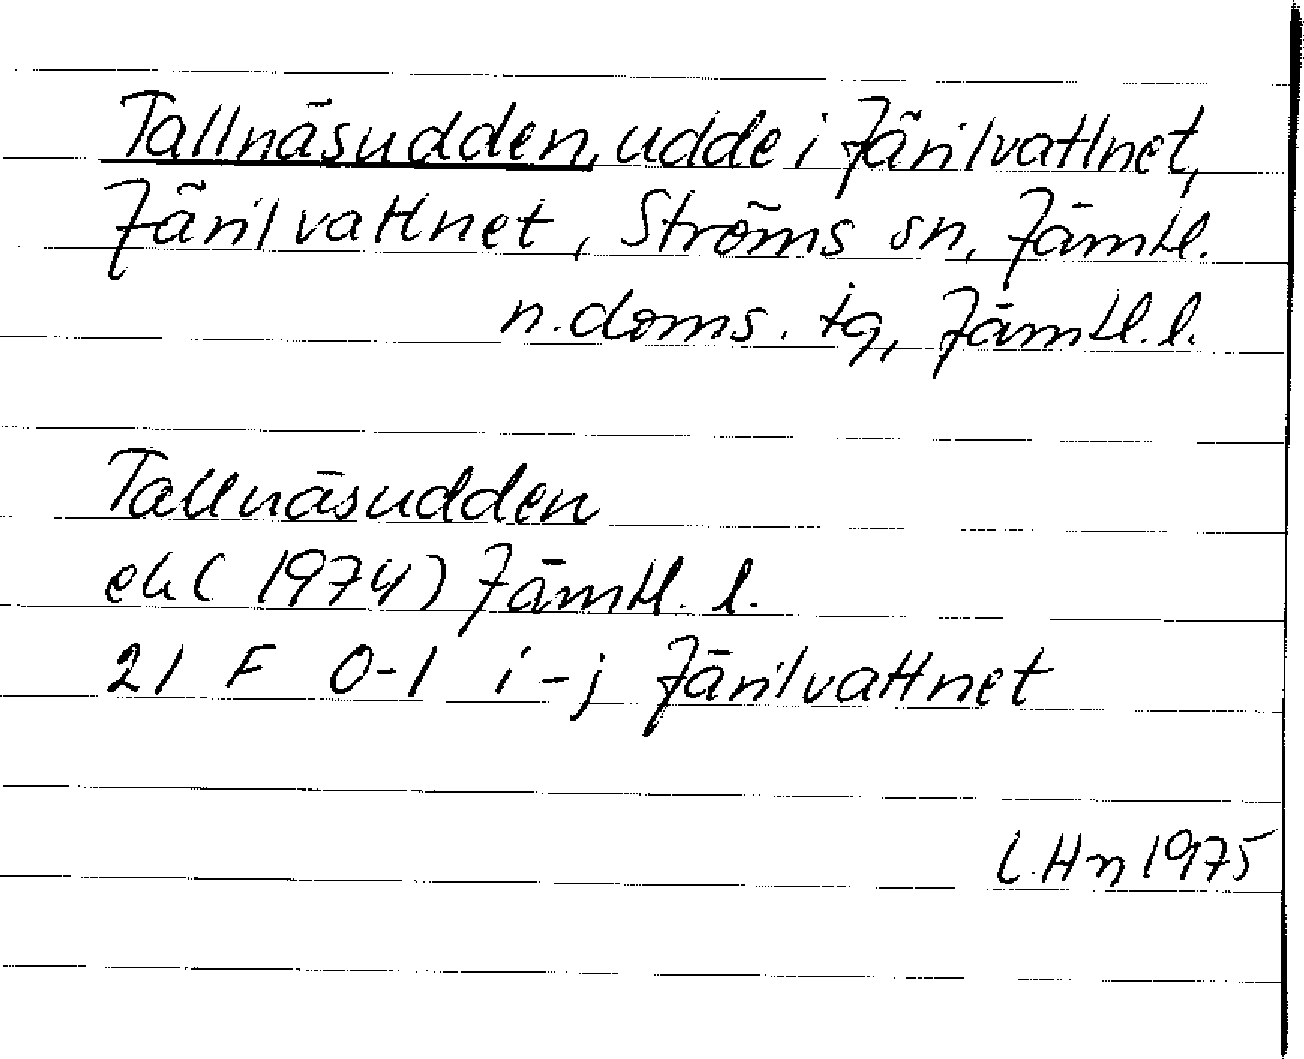 Tallnäsudden, udde i Järilvattnet,
Järilvattnet, Ströms sn, Jämtl.
n. doms. tg, Jämtl. l.
Tallnäsudden
ek (1974) Jämtl. l.
21 F 0-1 i-j Järilvattnet
L. Hn 1975